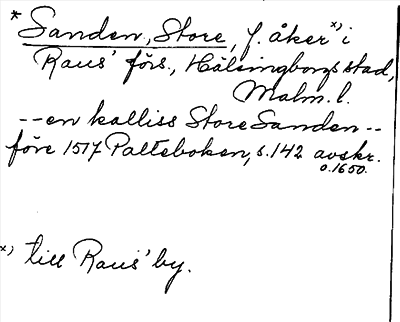 * Sanden, Store, f. åker x) i
Raus' förs., Hälsingborgs stad,
Malm. l.
-- en kalliss Store Sanden --
före 1517 Palteboken, s. 142 avskr.
o. 1650.
x) till Raus' by.